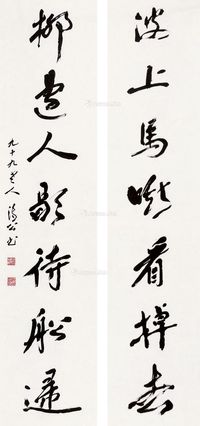 波上馬嘶看棹去
柳邊人歇待船歸
九十九老人 海公书